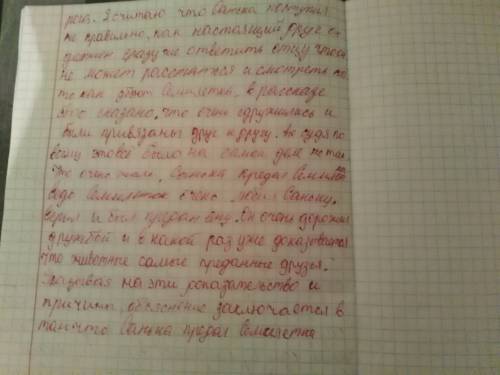 рога. Я считаю что Санька поступил
не правильно, как настоящий друг он
должен сразу же ответить отцу что он
не может расстаться и смотреть на
то как убют Семилетка, в рассказе
это сказано, что очень сдружились и
были привязаны друг к другу. Но судя по
всему этовсё было на самом деле не так.
Это очень Санька предал Семилетка
ведь Семилеток очень любил Саньку.
верил и был предан ему. Он очень дорожил
дружбой и в какой раз уже доказывается
что животные самые преданные друзья.
на эти доказательство и
причины, объяснение заключается в
том что Санька предал Семилетка